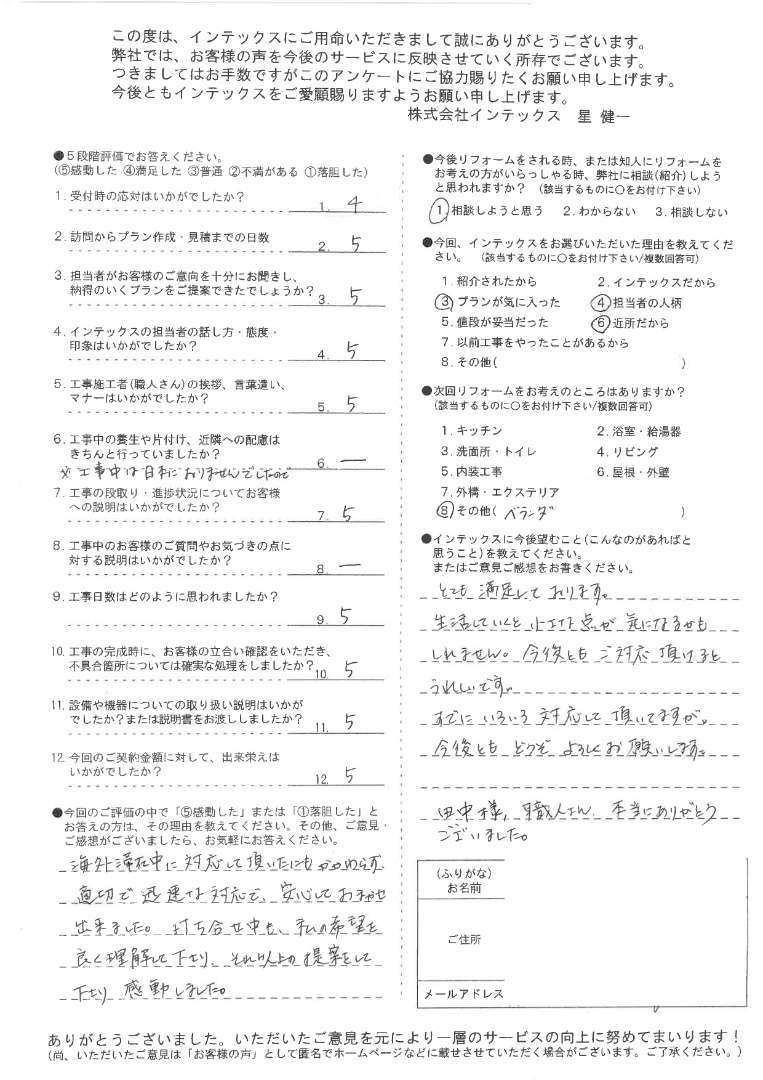 この度は、インテックスにご用命いただきまして誠にありがとうございます。
弊社では、お客様の声を今後のサービスに反映させていく所存でございます。
つきましてはお手数ですがこのアンケートにご協力賜りたくお願い申し上げます。
今後ともインテックスをご愛顧賜りますようお願い申し上げます。
株式会社インテックス 星 健一
●5段階評価でお答えください。
(⑤感動した ④満足した ③普通 ②不満がある ①落胆した)
1. 受付時の応対はいかがでしたか?
1. 4
2. 訪問からプラン作成・見積までの日数
2. 5
3. 担当者がお客様のご意向を十分にお聞きし、
納得のいくプランをご提案できたでしょうか?
3. 5
4. インテックスの担当者の話し方・態度・
印象はいかがでしたか?
4. 5
5. 工事施工者(職人さん)の挨拶、言葉遣い、
マナーはいかがでしたか?
5. 5
6. 工事中の養生や片付け、近隣への配慮は
きちんと行っていましたか?
6. ー
※工事中は日本におりませんでしたので
7. 工事の段取り・進捗状況についてお客様
への説明はいかがでしたか?
7. 5
8. 工事中のお客様のご質問やお気づきの点に
対する説明はいかがでしたか?
8. ー
9. 工事日数はどのように思われましたか?
9. 5
10. 工事の完成時に、お客様の立合い確認をいただき、
不具合箇所については確実な処理をしましたか?
10. 5
11. 設備や機器についての取り扱い説明はいかが
でしたか?または説明書をお渡ししましたか?
11. 5
12. 今回のご契約金額に対して、出来栄えは
いかがでしたか?
12. 5
●今回のご評価の中で「⑤感動した」または「①落胆した」と
お答えの方は、その理由を教えてください。その他、ご意見・
ご感想がございましたら、お気軽にお答えください。
海外滞在中に対応して頂いたにもかかわらず
適切で迅速な対応で、安心しておまかせ
出来ました。打ち合せ中も、私の希望を
良く理解して下さり、それ以上の提案をして
下さり感動しました。
●今後リフォームをされる時、または知人にリフォームを
お考えの方がいらっしゃる時、弊社に相談(紹介)しよう
と思われますか? (該当するものに〇をお付け下さい)
①相談しようと思う 2. わからない 3. 相談しない
●今回、インテックスをお選びいただいた理由を教えてくだ
さい。 (該当するものに〇をお付け下さい/複数回答可)
1. 紹介されたから 2. インテックスだから
③プランが気に入った ④担当者の人柄
5. 値段が妥当だった ⑥近所だから
7. 以前工事をやったことがあるから
8. その他( )
●次回リフォームをお考えのところはありますか?
(該当するものに〇をお付け下さい/複数回答可)
1. キッチン 2. 浴室・給湯器
3. 洗面所・トイレ 4. リビング
5. 内装工事 6. 屋根・外壁
7. 外構・エクステリア
⑧その他( ベランダ )
●インテックスに今後望むこと(こんなのがあればと
思うこと)を教えてください。
またはご意見ご感想をお書きください。
とても満足しております。
生活していくと小さな点が気になるかも
しれません。今後ともご対応頂けると
うれしいです。
すでにいろいろ対応して頂いてますが、
今後ともどうぞよろしくお願いします。
田中様、職人さん、本当にありがとう
ございました。
(ふりがな)
お名前
ご住所
メールアドレス
ありがとうございました。いただいたご意見を元により一層のサービスの向上に努めてまいります!
(尚、いただいたご意見は「お客様の声」として匿名でホームページなどに載せさせていただく場合がございます。ご了承ください。)